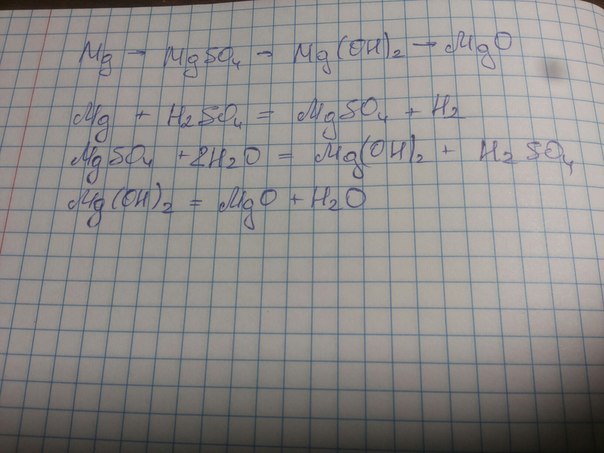 Mg → MgSO₄ → Mg(OH)₂ → MgO
Mg + H₂SO₄ = MgSO₄ + H₂
MgSO₄ + 2H₂O = Mg(OH)₂ + H₂SO₄
Mg(OH)₂ = MgO + H₂O